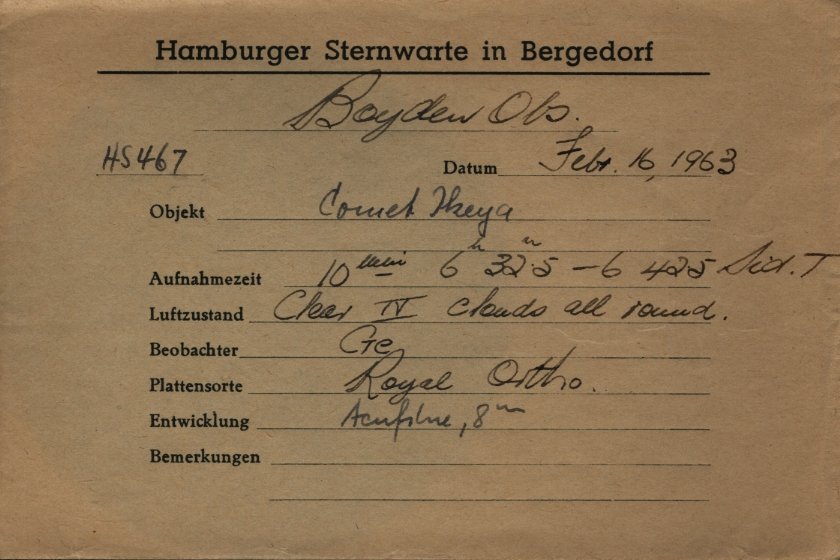 Hamburger Sternwarte in Bergedorf
Boyden Obs.
HS467 Datum Febr. 16, 1963
Objekt Comet Ikeya
Aufnahmezeit 10 min 6h 32m.5 – 6 42.5 Sid. T
Luftzustand Clear IV clouds all round.
Beobachter Ge
Plattensorte Royal Ortho.
Entwicklung Acufine, 8m
Bemerkungen